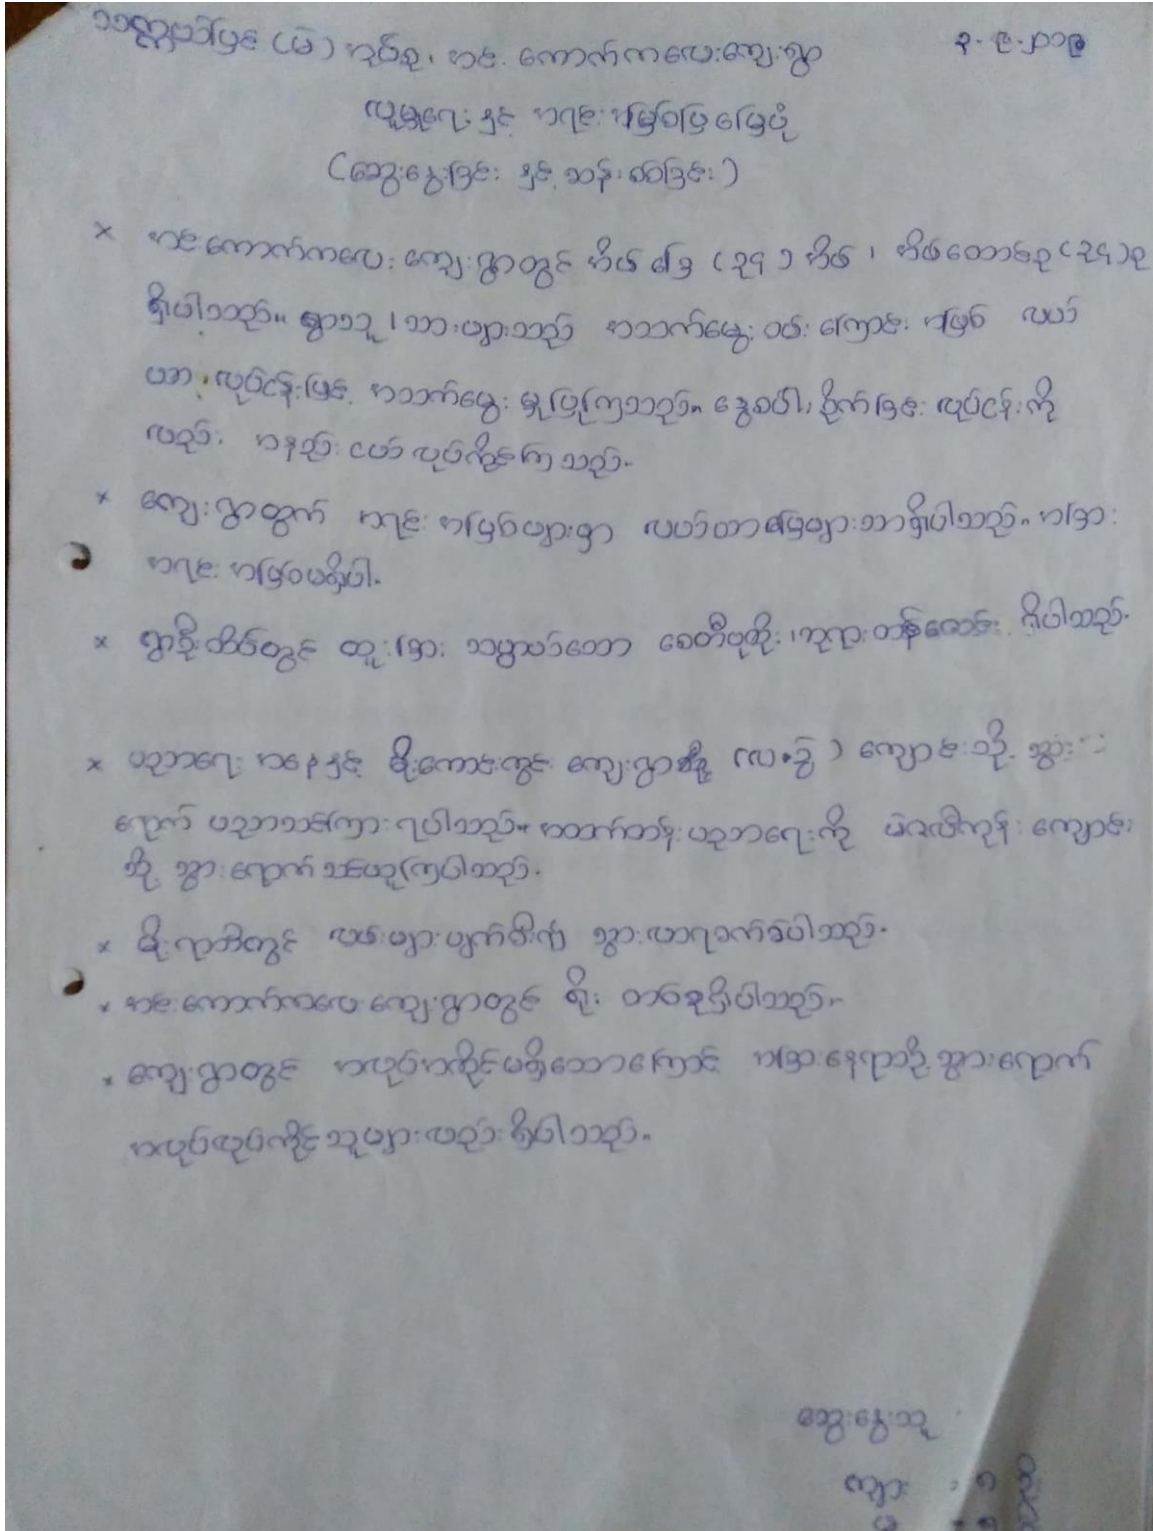 သတ္တမမိုင် (မဲ) အုပ်စု၊ အင်းကောက်ကလေးကျေးရွာ ၃-၉-၂၀၁၉
လူမှုရေးနှင့် အရင်းအမြစ်ပြမြေပုံ
(ဆွေးနွေးခြင်းနှင့် ဆန်းစစ်ခြင်း)
× အင်းကောက်ကလေးကျေးရွာတွင် အိမ်ခြေ (၃၄) အိမ်၊ အိမ်ထောင်စု (၃၄) စု
ရှိပါသည်။ ရွာသူ/သားများသည် အသက်မွေးဝမ်းကြောင်းအဖြစ် လယ်
ယာလုပ်ငန်းဖြင့် အသက်မွေးမှုပြုကြသည်။ နွေစပါးစိုက်ခြင်းလုပ်ငန်းကို
လည်း အနည်းငယ်လုပ်ကိုင်ကြသည်။
× ကျေးရွာတွက် အရင်းအမြစ်များမှာ လယ်ယာမြေများသာရှိပါသည်။ အခြား
အရင်းအမြစ်မရှိပါ။
× ရွာဦးထိပ်တွင် ထူးခြားသမ္မာယ်သော စေတီပုထိုး၊ဘုရားတန်ဆောင်းရှိပါသည်။
× ပညာရေးအနေနှင့် မိုးကောင်းကွင်းကျေးရွာရှိ (လ.ခွဲ) ကျောင်းသို့ သွား
ရောက် ပညာသင်ကြားရပါသည်။ အထက်တန်းပညာရေးကို မဲဇလီကုန်းကျောင်း
သို့ သွားရောက်သင်ယူကြပါသည်။
× မိုးရာသီတွင် လမ်းများပျက်စီး၍ သွားလာရခက်ခဲပါသည်။
× အင်းကောက်ကလေးကျေးရွာတွင် ရိုး တစ်ခုရှိပါသည်။
× ကျေးရွာတွင် အလုပ်အကိုင်မရှိသောကြောင့် အခြားနေရာသို့ သွားရောက်
အလုပ်လုပ်ကိုင်သူများလည်းရှိပါသည်။
ဆွေးနွေးသူ
ကျား - ၈